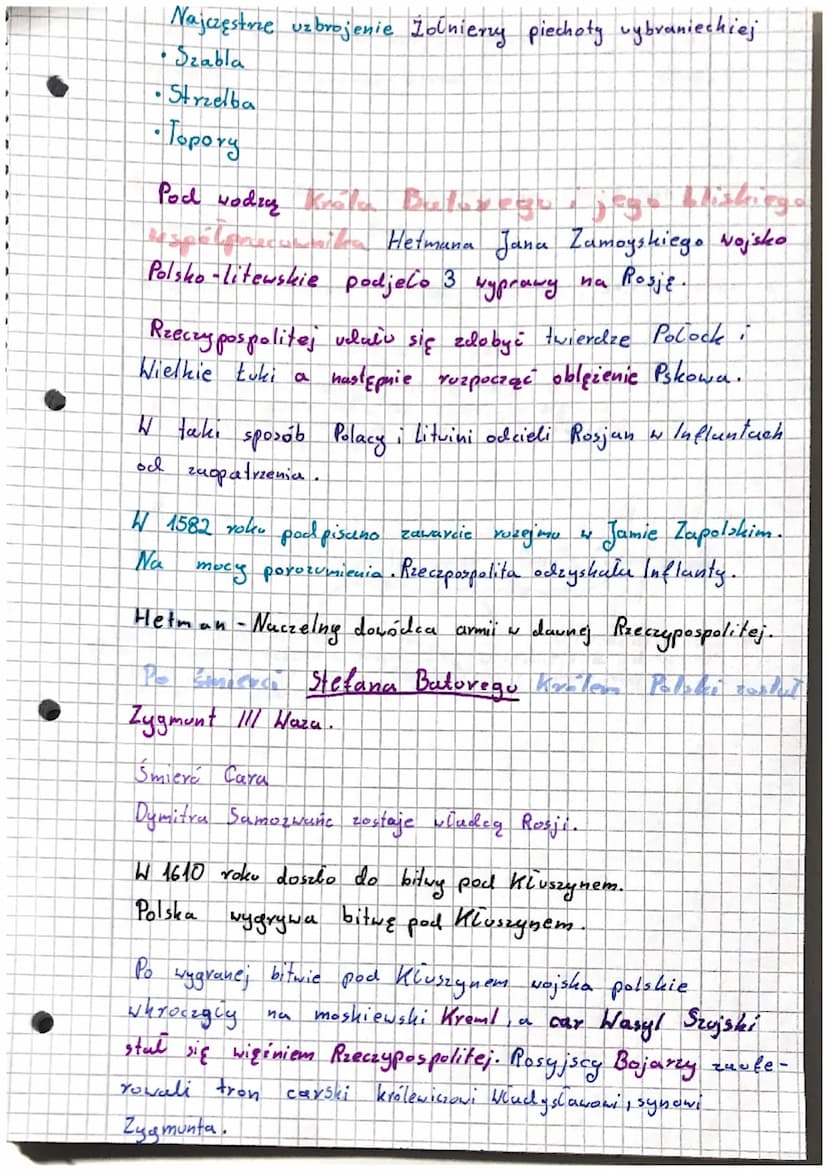 Najczęstrze uzbrojenie Żołnierzy piechoty wybranieckiej
• Szabla
• Strzelba
• Topory
Pod wodzą Króla Batorego i jego bliskiego
współpracownika Hetmana Jana Zamoyskiego wojsko
Polsko-litewskie podjeło 3 wyprawy na Rosję.
Rzeczypospolitej udało się zdobyć twierdze Połock i
Wielkie Łuki a następnie rozpocząć oblężenie Pskowa.
W taki sposób Polacy i Litwini odcieli Rosjan w Inflantach
od zaopatrzenia.
W 1582 roku podpisano zawarcie rozejmu w Jamie Zapolskim.
Na mocy porozumienia. Rzeczpospolita odzyskała Inflanty.
Hetman - Naczelny dowódca armii w dawnej Rzeczypospolitej.
Po śmierci Stefana Batorego Królem Polski został
Zygmunt III Waza.
Śmierć Cara
Dymitra Samozwańc zostaje władcą Rosji.
W 1610 roku doszło do bitwy pod Kłuszynem.
Polska wygrywa bitwę pod Kłuszynem.
Po wygranej bitwie pod Kłuszynem wojska polskie
wkroczyły na moskiewski Kreml, a car Wasyl Szujski
stał się więźniem Rzeczypospolitej. Rosyjscy Bojarzy zaofe-
rowali tron carski królewiczowi Władysławowi, synowi
Zygmunta.